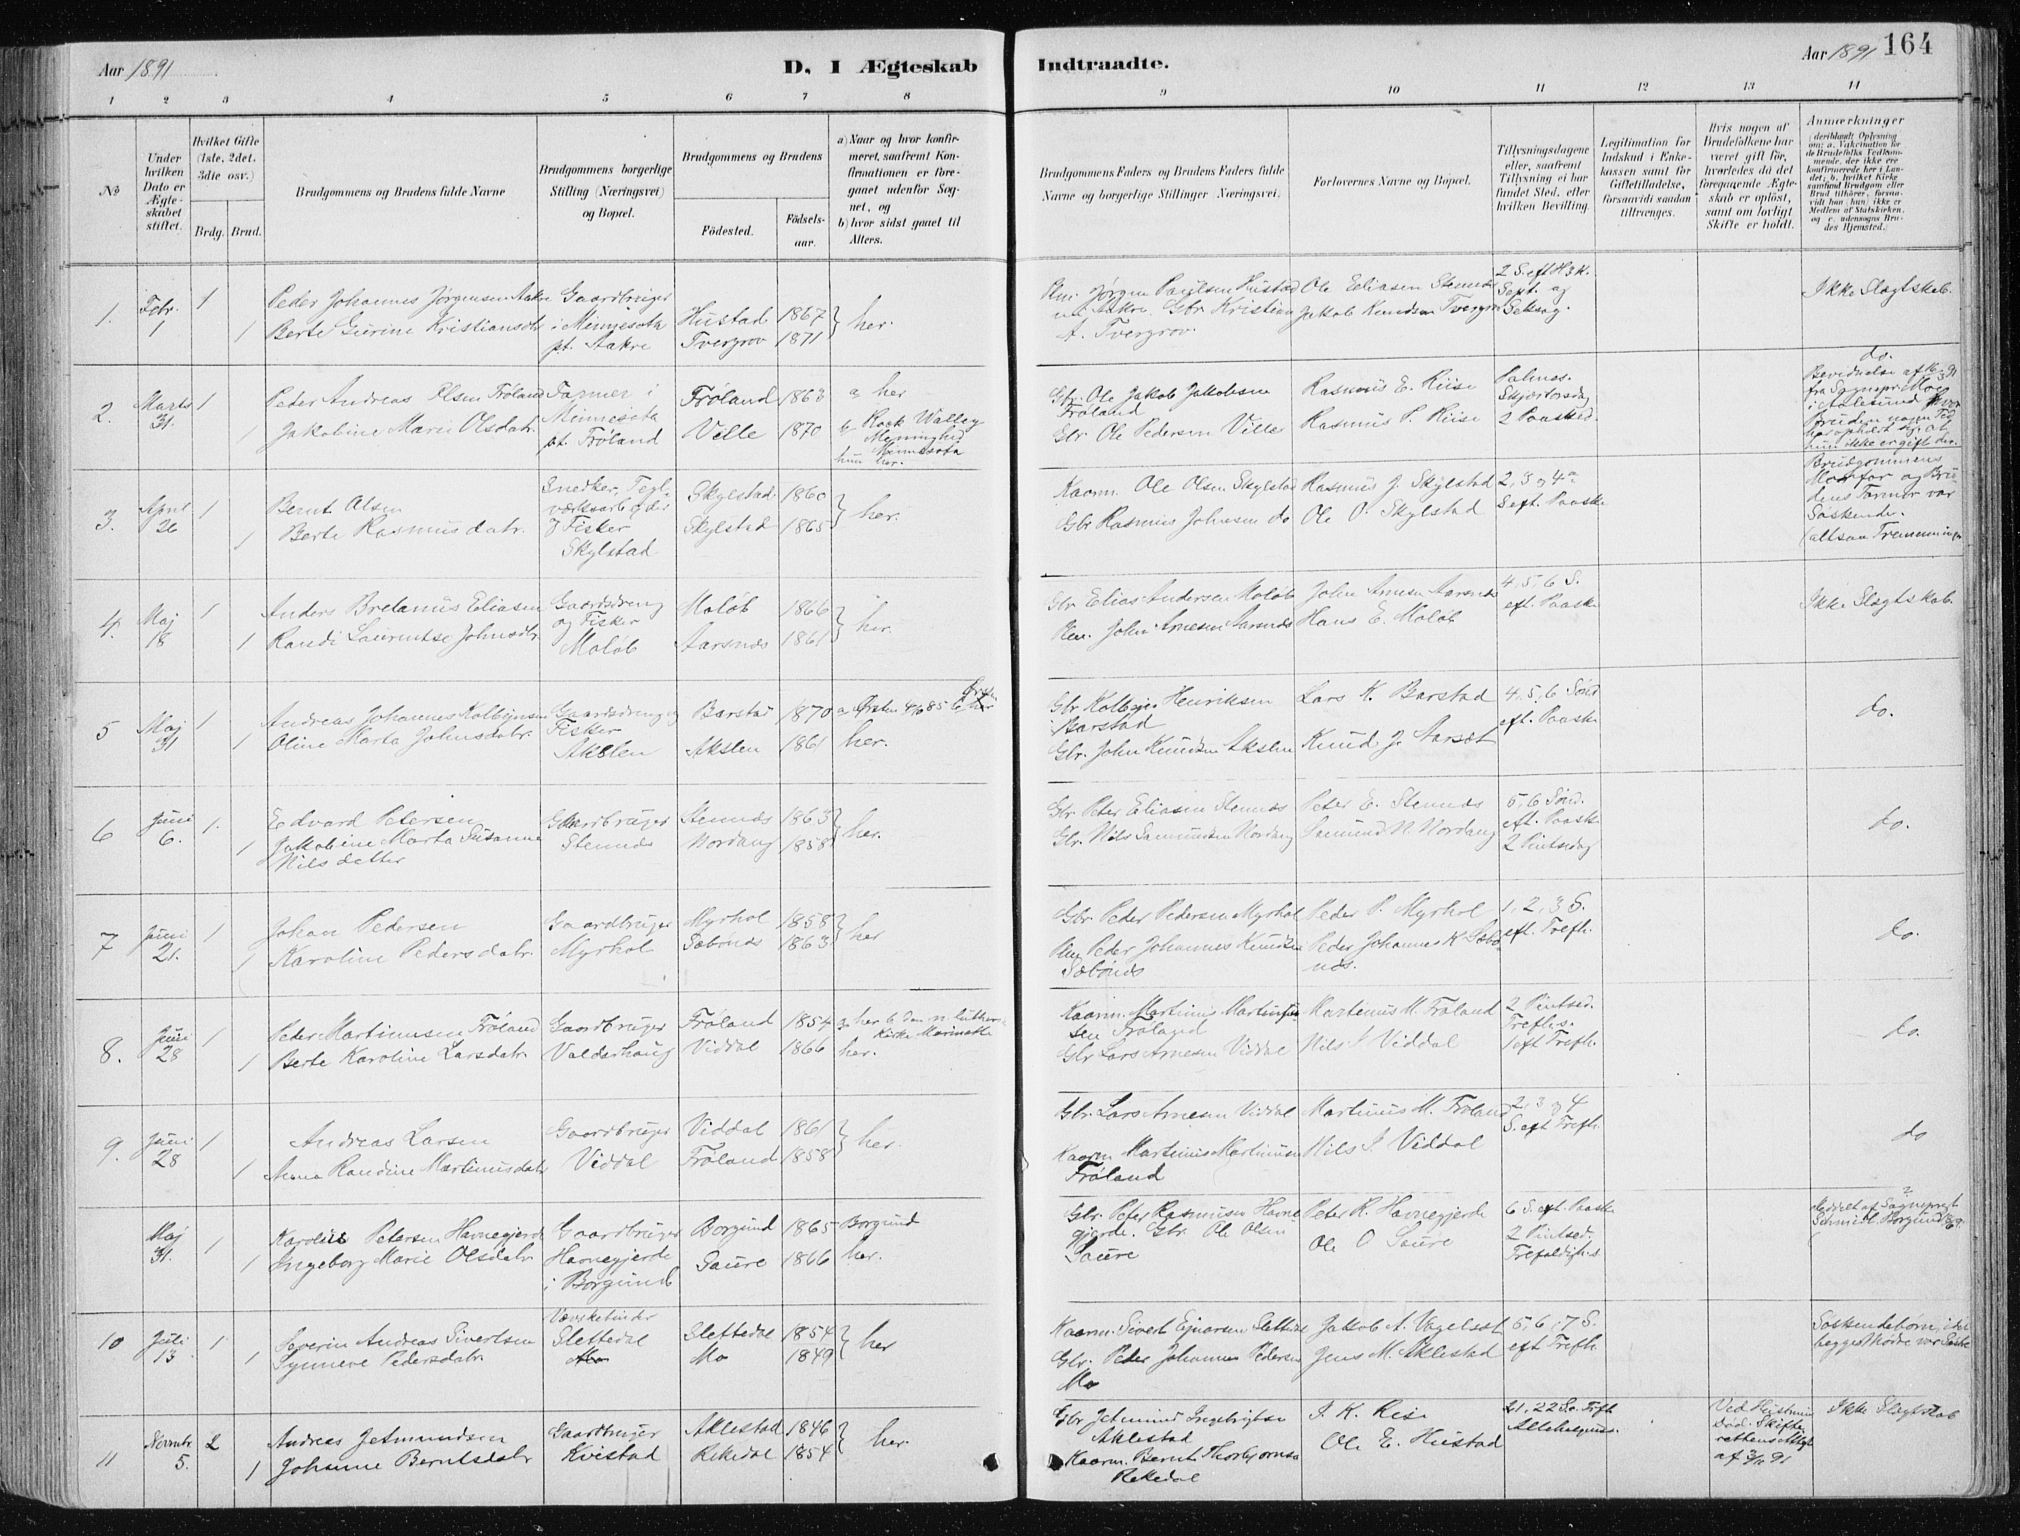 Aar 1891
D. I Ægteskab Indtraadte.
Aar 1891 164
1 2 3 4 5 6 7 8 9 10 11 12 13 14
No
Under hvilken Dato er Ægteskabet stiftet.
Hvilket Gifte (1ste, 2det, 3die osv.)
Brdg. Brud.
Brudgommens og Brudens fulde Navne
Brudgommens borgerlige Stilling (Næringsvei) og Bopæl.
Brudgommens og Brudens
Födested.
Födsels-aar.
a) Naar og hvor konfirmeret, saafremt Konfirmationen er foregaaet udenfor Sognet, og
b) hvor sidst gaaet til Alters.
Brudgommens Faders og Brudens Faders fulde Navne og borgerlige Stillinger Næringsvei.
Forlovernes Navne og Bopæl.
Tillysningsdagene eller, saafremt Tillysning ei har fundet Sted, efter hvilken Bevilling
Legitimation for Indskud i Enkekassen samt for Giftetilladelse, forsaavidt saadan tiltrænges.
Hvis nogen af Brudefolkene har været gift för, hvorledes da det foregaaende Ægteskab er oplöst, samt om lovligt Skifte er holdt.
Anmærkninger
(deriblandt Oplysning om: a. Vakcination for de Brudefolks Vedkommende, der ikke ere konfirmerede her i Landet; b. hvilket Kirkesamfund Brudgom eller Brud tilhörer, forsaavidt han (hun) ikke er Medlem af Statskirken, og c. udensogns Brudes Hjemsted.
1. Febr. 1 1 1
Peder Johannes Jørgensen Aakre
Berte Gurine Kristiansdtr.
Gaardbruger i Minnesota pt. Aakre
Hustad 1867
Tvergrov 1871
her.
Jørgen Paulsen Hustad
Aakre. Gbr. Kristian A. Tvergrov.
Ole Eliasen Stennes
Jakob Knudsen Tvergrov
2 S. eft. H3K.
Sept. og Seksag.
Ikke Slægtskab.
2. Marts 31. 1 1
Peder Andreas Olsen Frøland
Jakobine Marie Olsdatr.
Farmer i Minnesota pt. Frøland
Frøland 1863
Velle 1870
a her
b Rock Walley Menninghed Minnesota
hun her.
Gbr. Ole Jakob Jakobsen Frøland
Gbr. Ole Pedersen Ville
Rasmus E. Riise
Rasmus P. Riise
Palmes.
Skjærtorsdag
2 Paasked.
do.
3. April 26 1 1
Bernt Olsen
Berte Rasmusdatr.
Snedker, Teglværksarbeider & Fisker
Skylstad
Skylstad 1860
Skylstad 1865
her.
Kaarm. Ole Olsen Skylstad
Gbr Rasmus Johnsen do
Rasmus J. Skylstad
Ole O. Skylstad
2, 3 og 4de
S eft. Paaske
Brudgommens Morfar og Brudens Farmor var Søskende.
(altsaa Tremenninger
4. Maj 18 1 1
Anders Bretanus Eliasen
Randi Laurentse Johnsdtr.
Gaardsdreng og Fisker
Moløb
Moløb 1866
Aarsnes 1861
her.
Gbr Elias Andersen Moløb
John Arnesen Aarsnes
John Arnesen Aarsnes
Hans E. Moløb
4, 5, 6 S.
eft. Paaske
Ikke Slægtskab.
5 Maj 31 1 1
Andreas Johannes Kolbejnsen
Oline Marta Johnsdatr.
Gaardsdreng og Fisker
Akslen
Barstad 1870
Akslen 1861
a Ørsten 4/10 85 b her
her.
Gbr Kolbejn Henriksen Barstad
Gbr. John Knudsen Akslen
Lars K. Barstad
Knud J. Aarset
4, 5, 6 Sønd
eft. Paaske
do.
6 Juni 6. 1. 1
Edvard Petersen
Jakobine Marta Susanna Nilsdatter
Gaardbruger
Stennes
Stennes 1863
Nordang 1858
her.
Gbr Peter Eliasen Stennes
Gbr. Nils Samundsen Nordang
Peter E. Stennes
Samund N. Nordang
5, 6 Sønd.
eft. Paaske
2 Pintsedag
do.
7 Juni 21. 1 1
Johan Pedersen
Karoline Pedersdatr.
Gaardbruger
Myrhol
Myrhol 1858
Sæbønes 1863
her
Gbr. Peder Pedersen Myrhol
Peder Johannes Knudsen Sæbønes
Peder P. Myrhol
Peder Johannes K Sæbønes.
1, 2, 3 S.
eft. Trefh.
do.
8. Juni 28 1 1
Peder Martinussen Frøland
Berte Karoline Larsdatr.
Gaardbruger
Valderhaug
Frøland 1854
Viddal 1866
a her b den n. luther. Kirke
her.
Kaarm. Martinus Martinussen Frøland
Gbr Lars Arnesen Viddal
Martinus M. Frøland
Nils I Viddal
2 Pintsed.
Trefh.s.
1 eft Trefh.
do.
9. Juni 28 1 1
Andreas Larsen
Anna Randine Martinusdatr
Gaardbruger
Viddal
Viddal 1861
Frøland 1858
her.
Gbr. Lars Arnesen Viddal
Kaarm Martinus Martinusen Frøland
Martinus M. Frøland
Nils I. Viddal
2, 3 og 4
S. eft Trefh.
do
Maj 31. 1 1
Karolius Petersen Havnegjerde
Ingeborg Marie Olsdatr.
Gaardbruger
Havnegjerde
i Borgund
Borgund 1865
Saure 1866
Borgund
her.
Gbr. Peter Rasmusen Havnegjerde. Gbr Ole Olsen Saure
Peter R. Havnegjerde
Ole O Saure
6 S. eft. Paaske
2 Pintsed.
Trefoldigh.s.
Meddelt af Sognepræst Schmidt Borgund
10 Juli 13. 1 1
Severin Andreas Sivertsen
Synneve Pedersdatr.
Vævskebinder
Slettedal
Slettedal 1854
Mo 1849
her
Kaarm. Sivert Ejnarsen Slettedal
Gbr. Peder Johannes Pedersen Mo
Jakob A. Vogelsæt
Jens M. Aklestad
5, 6, 7 S.
eft Trefh.
Søskendebørn, idet begges Mødre var Søstre
11 Novmbr. 5. 2 1
Andreas Jetmundsen
Johanne Berntsdatr
Gaardbruger
Kvistad
Aklestad 1846
Rekedal 1854
her.
Gbr Jetmund Ingebrigtsen Aklestad
Kaarm. Bernt Thorbjørnsen Rekedal
I. K. Rese
Ole E. Hustad
21, 22 So. Trfh
Allehelgens.
Ved Hustruens Død. Skifterettens Attest af 3/11 91
Ikke Slægtskab